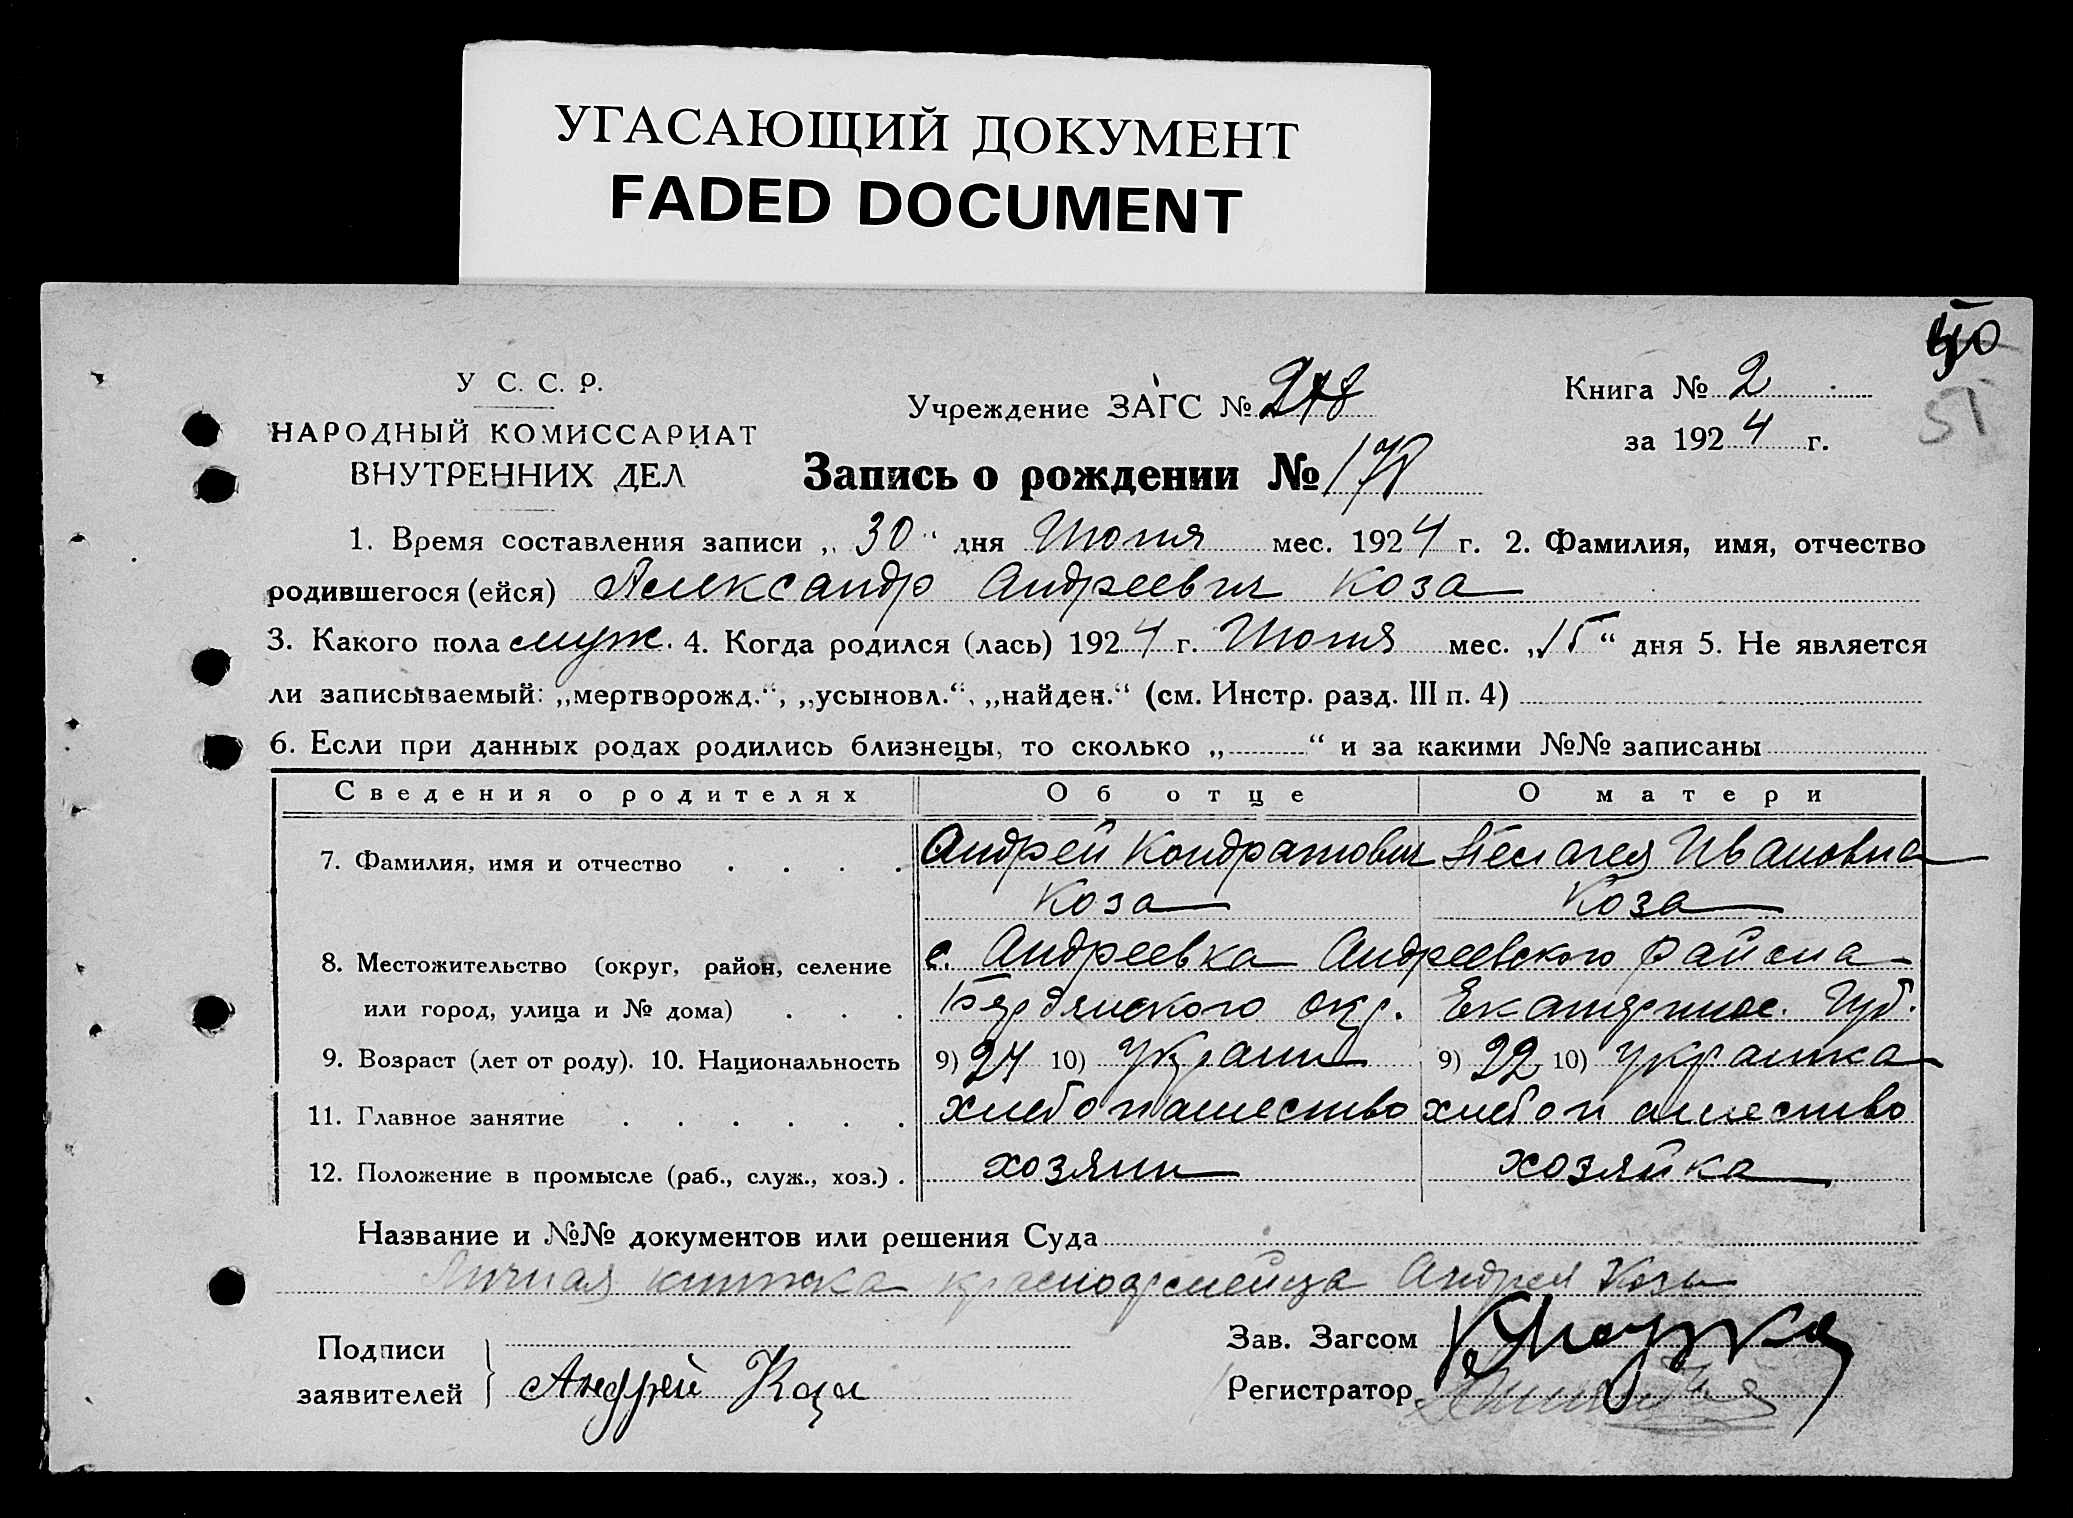 УГАСАЮЩИЙ ДОКУМЕНТ
FADED DOCUMENT
50
51
У С. С. Р.
НАРОДНЫЙ КОМИССАРИАТ
ВНУТРЕННИХ ДЕЛ
Учреждение ЗАГС № 278
Книга № 2
за 1924 г.
Запись о рождении №
1. Время составления записи „30“ дня Июня мес. 1924 г. 2. Фамилия, имя, отчество
родившегося (ейся) Александр Андреевич Коза
3. Какого пола муж. 4. Когда родился (лась) 1924 г. Июня мес. „15“ дня 5. Не является
ли записываемый: „мертворожд.“, „усыновл.“, „найден.“ (см. Инстр. разд. III п. 4)
6. Если при данных родах родились близнецы, то сколько „ “ и за какими №№ записаны
Сведения о родителях Об отце О матери
7. Фамилия, имя и отчество . . . . Андрей Кондратович Пелагея Ивановна
Коза Коза
8. Местожительство (округ, район, селение с. Андреевка Андреевского района
или город, улица и № дома) . . . Бердянского окр. Екатеринос. Губ.
9. Возраст (лет от роду). 10. Национальность 9) 24 10) Украин 9) 22 10) украинка
11. Главное занятие . . . . . . хлебопашество хлебопашество
12. Положение в промысле (раб., служ., хоз.) . хозяин хозяйка
Название и №№ документов или решения Суда
Личная книжка красноармейца Андрея Козы
Подписи
заявителей } Андрей Коза
Зав. Загсом
Регистратор